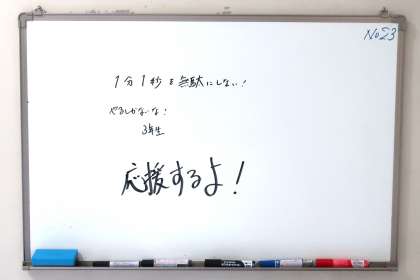 No23
1分1秒を無駄にしない!
やるしかないな!
3年生
応援するよ!